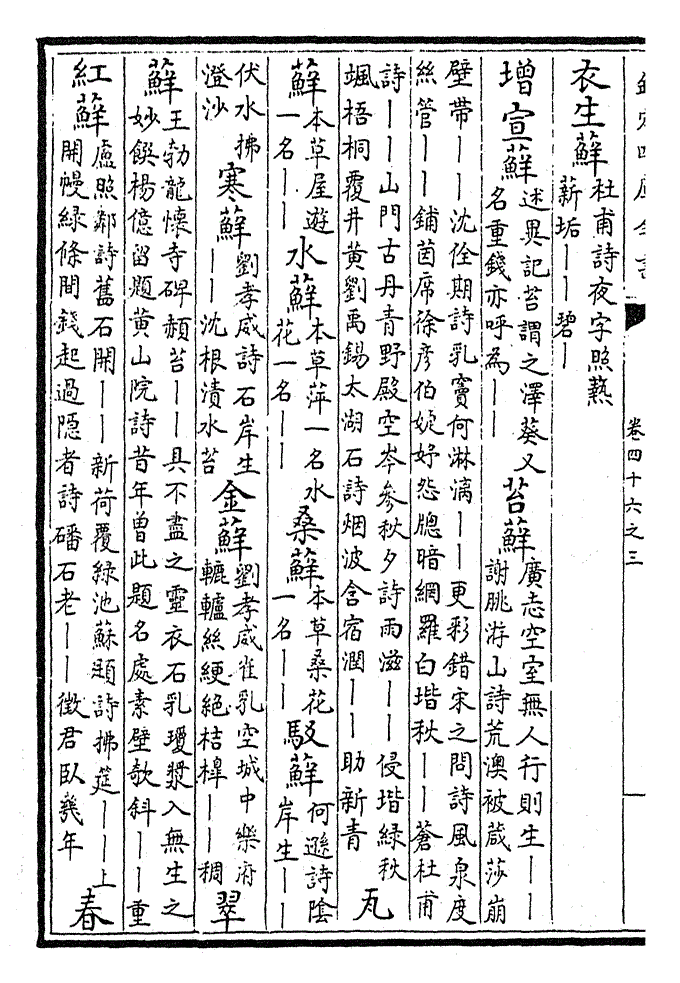 欽定四庫全書
卷四十六之三
衣生蘚 杜甫詩夜字照爇
薪垢——碧—
增宣蘚 述異記苔謂之澤葵又
名重錢亦呼為——
苔蘚 廣志空室無人行則生——
謝朓游山詩荒澳被葴莎崩
壁帶——沈佺期詩乳竇何淋漓——更彩錯宋之問詩風泉度
絲管——鋪茵席徐彥伯婕妤怨牕暗網羅白堦秋——蒼杜甫
詩——山門古丹青野殿空岑參秋夕詩雨滋——侵堦綠秋
颯梧桐覆井黃劉禹錫太湖石詩烟波含宿潤——助新青
瓦
蘚 本草屋遊
一名——
水蘚 本草萍一名水
花一名——
桑蘚 本草桑花
一名——
駁蘚 何遜詩陰
岸生——
伏水拂
澄沙
寒蘚 劉孝威詩石岸生
——沈根漬水苔
金蘚 劉孝威雀乳空城中樂府
轆轤絲綆絕桔槹——稠
翠
蘚 王勃龍懷寺碑頳苔——具不盡之靈衣石乳瓊漿入無生之
妙饌楊億留題黃山院詩昔年曾此題名處素壁欹斜——重
紅蘚 盧照鄰詩舊石開——新荷覆綠池蘇頲詩拂筵——上
開幔綠條間錢起過隱者詩磻石老——徵君臥幾年
春